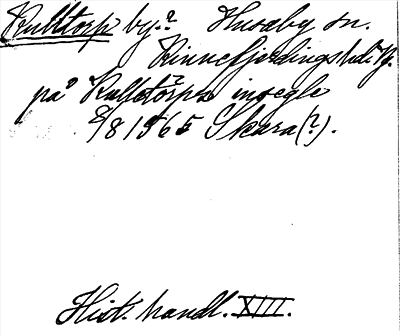 Kulltorp by.? Husaby sn.
Kinnefjerdings hd. Vg.
på Kulletorps insegle
2/8 1565 Skara(?).
Hist. handl. XIII.